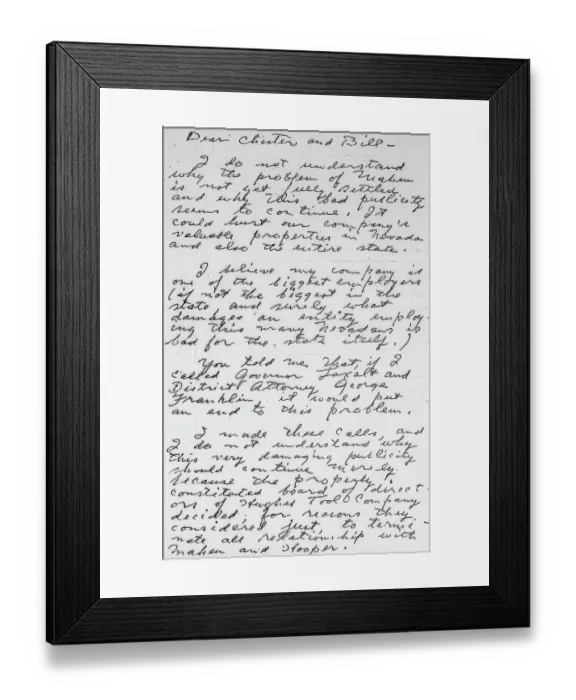 Dear Chester and Bill -
I do not understand
why the problem of Maheu
is not yet fully settled
and why this bad publicity
seems to continue. It
could hurt our company's
valuable properties in Nevada
and also the entire state.
I believe my company is
one of the biggest employers
(if not the biggest in the
state and surely what
damages an entity employ-
ing this many Nevadans is
bad for the state itself.)
You told me that, if I
called Governor Laxalt and
District Attorney George
Franklin, it would put
an end to this problem.
I made these calls, and
I do not understand why
this very damaging publicity
should continue merely
because the properly
constituted board of direct-
ors of Hughes Tool Company
decided, for reasons they
considered just, to termi-
nate all relationship with
Maheu and Hooper.